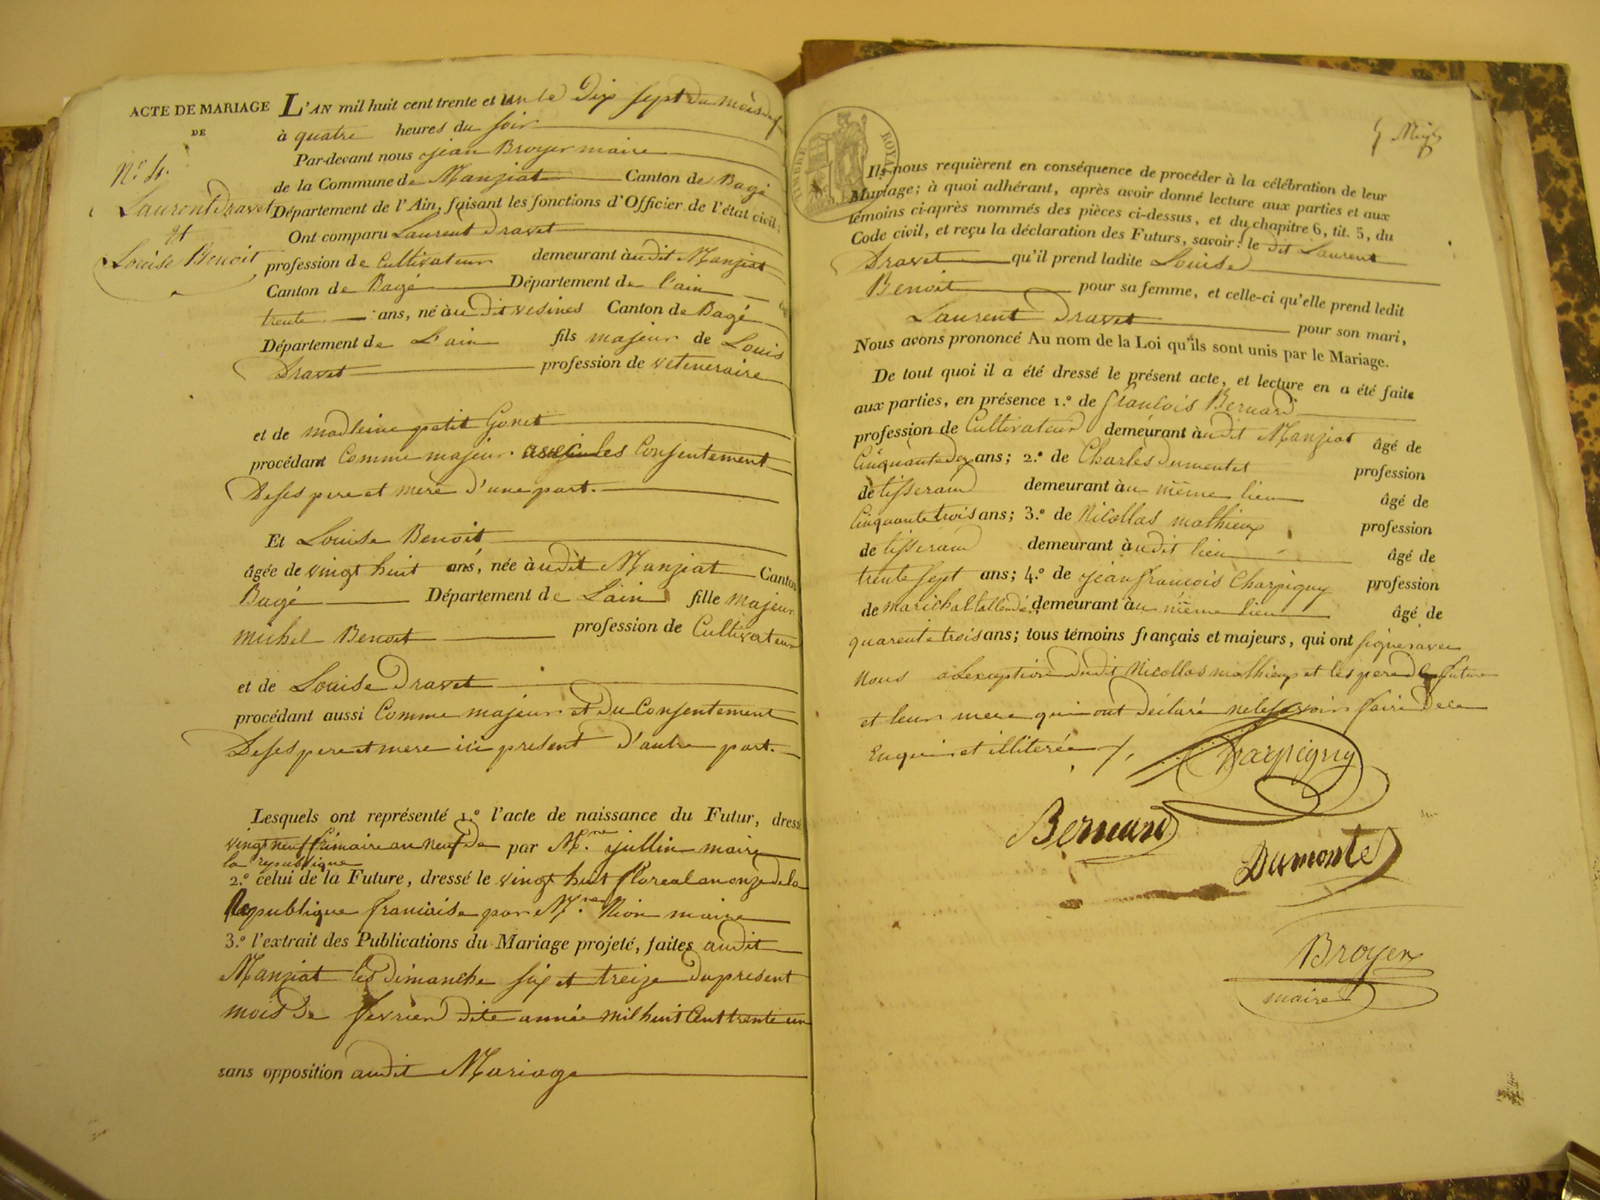 ACTE DE MARIAGE
DE
N.º 4.
Laurent Dravet
et
Louise Benoit
L'AN mil huit cent trente et un le Dix sept du mois de
à quatre heures du soir
Par-devant nous jean Broyer maire
de la Commune de Manziat Canton de Bagé
Département de l'Ain, faisant les fonctions d'Officier de l'état civil,
Ont comparu Laurent Dravet
profession de Cultivateur demeurant audit Manziat
Canton de Bagé Département de l'ain
trente ans, né audit vesines Canton de Bagé
Département de L'ain fils majeur de Louis
Dravet profession de veteneraire
et de madleine petit Gonet
procédant Comme majeur les Consentement
Deses pere et mere d'une part.
Et Louise Benoit
âgée de vingt huit ans, née audit Manziat Canton
Bagé Département de Lain fille majeur
michel Benoit profession de Cultivateur
et de Louise Dravet
procédant aussi Comme majeur et du Consentement
Deses pere et mere ici present d'autre part.
Lesquels ont représenté 1.º l'acte de naissance du Futur, dressé
vingt neuf frimaire an neuf de par M.re jullin maire
la republique
2.º celui de la Future, dressé le vingt huit floreal an onze de la
Republique francaise par M.re Nion maire
3.º l'extrait des Publications du Mariage projeté, faites audit
Manziat les dimanche six et treize du present
mois de fevrier dite année mil huit Cent trente un
sans opposition audit Mariage
TIMBRE ROYAL
Ils nous requièrent en conséquence de procéder à la célébration de leur
Mariage; à quoi adhérant, après avoir donné lecture aux parties et aux
témoins ci-après nommés des pièces ci-dessus, et du chapitre 6, tit. 5, du
Code civil, et reçu la déclaration des Futurs, savoir: le dit Laurent
Dravet qu'il prend ladite Louise
Benoit pour sa femme, et celle-ci qu'elle prend ledit
Laurent Dravet pour son mari,
Nous avons prononcé Au nom de la Loi qu'ils sont unis par le Mariage.
De tout quoi il a été dressé le présent acte, et lecture en a été faite
aux parties, en présence 1.º de francois Bernard
profession de Cultivateur demeurant audit Manziat âgé de
Cinquante dex ans; 2.º de Charles dumontet profession
de tisserand demeurant au même lieu âgé de
Cinquante trois ans; 3.º de Nicollas mathieux profession
de tisserand demeurant audit lieu âgé de
trente sept ans; 4.º de jean francois Charpigny profession
de marichal demeurant au même lieu âgé de
quarente trois ans; tous témoins français et majeurs, qui ont signés avec
nous a Lexception dudit Nicollas mathieux et les pere de la future
et leur mere qui ont declaré ne le savoir faire de ce
Enquis et illiterée
Charpigny
Bernard
Dumontet
Broyer
maire